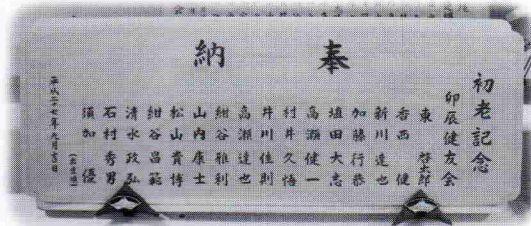 奉納
初老記念
卯辰健友会
東 啓太郎
香西 健
新川達也
加藤行恭
塩田大志
高瀬健一
村井久悟
井川佳則
高瀬達也
紺谷雅利
山内康士
松山貴博
紺谷昌範
清水政弘
石村秀男
須加 優
平成二十七年九月吉日